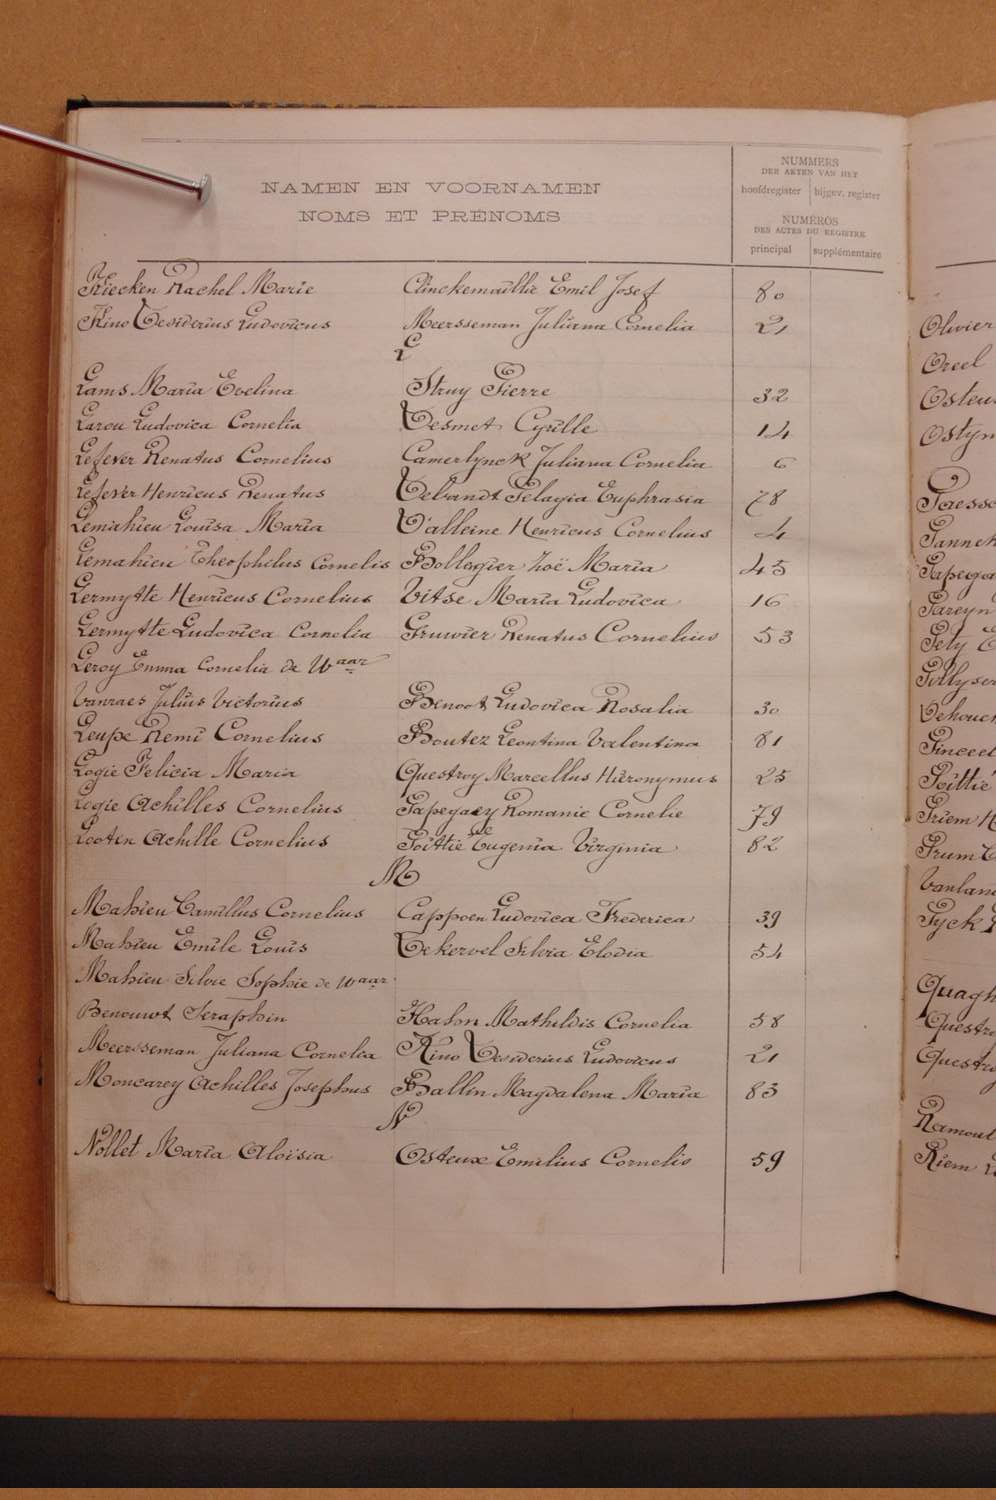 NAMEN EN VOORNAMEN
NOMS ET PRÉNOMS
NUMMERS
DER AKTEN VAN HET
hoofdregister bijgev. register
NUMÉROS
DES ACTES DU REGISTRE
principal supplémentaire
Kiecken Rachel Marie Clinckemaillie Emil Josef 80
Kino Desiderius Ludovicus Meersseman Juliana Cornelia 21
L
Lams Maria Evelina Struy Pierre 32
Larou Ludovica Cornelia Desmet Cyrille 14
Lefever Renatus Cornelius Camerlynck Juliana Cornelia 6
Lefever Henricus Renatus Debandt Pelagia Euphrasia 78
Lemahieu Louisa Maria D'alleine Henricus Cornelius 4
Lemahieu Theophilus Cornelis Bollengier Zoë Maria 45
Lermytte Henricus Cornelius Vitse Maria Ludovica 16
Lermytte Ludovica Cornelia Gruwier Renatus Cornelius 53
Leroy Emma Cornelia de Waar
Vanraes Julius Victorius Benoot Ludovica Rosalia 30
Leupe Remi Cornelius Boutez Leontina Valentina 81
Logie Felicia Maria Questroy Marcellus Hieronymus 25
Logie Achilles Cornelius Papegaey Romanie Cornelie 79
Lootin Achille Cornelius Poittié Eugenia Virginia 82
M
Mahieu Camillus Cornelius Cappoen Ludovica Frederica 39
Mahieu Emile Louis Dekervel Silvia Elodia 54
Mahieu Silvie Sophie de Waar
Benouwt Seraphin Hahn Mathildis Cornelia 58
Meersseman Juliana Cornelia Kino Desiderius Ludovicus 21
Moncarey Achilles Josephus Ballin Magdalena Maria 83
N
Nollet Maria Aloïsia Osteux Emilius Cornelis 59
Olivier
Oreel